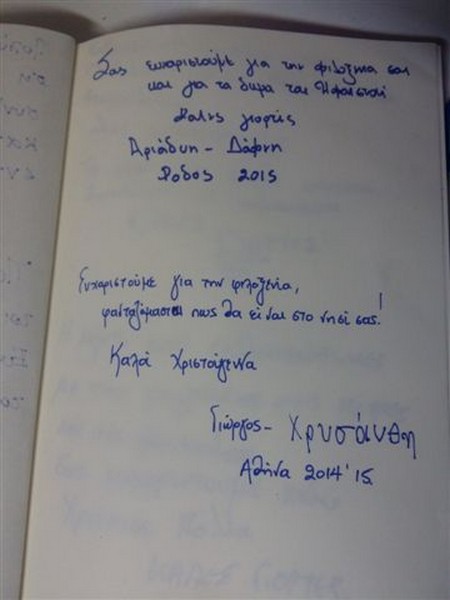 Σας ευχαριστούμε για την φιλοξενία σας
και για τα δώρα του Ηφαιστου
Καλες γιορτές
Αριάδνη - Δάφνη
Ρόδος 2015
Ευχαριστούμε για την φιλοξενία,
φανταζόμαστε πως θα είναι στο νησί σας!
Καλά Χριστόγεννα
Γιώργος - Χρυσάνθη
Αθήνα 2014'15